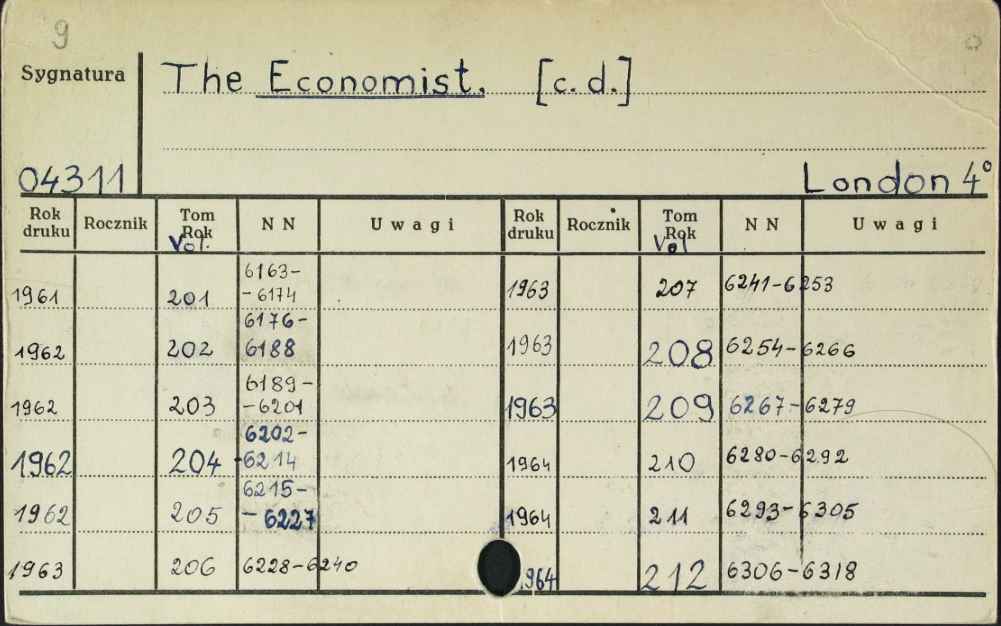 9
Sygnatura The Economist. [c. d.]
04311 London 4°
Rok druku Rocznik Tom Rok Vol. N N Uwagi Rok druku Rocznik Tom Rok Vol N N Uwagi
1961 201 6163-
-6174
1963 207 6241-6253
1962 202 6176-
6188
1963 208 6254-6266
1962 203 6189-
-6201
1963 209 6267-6279
1962 204 6202-
-6214
1964 210 6280-6292
1962 205 6215-
-6227
1964 211 6293-6305
1963 206 6228-6240
1964 212 6306-6318